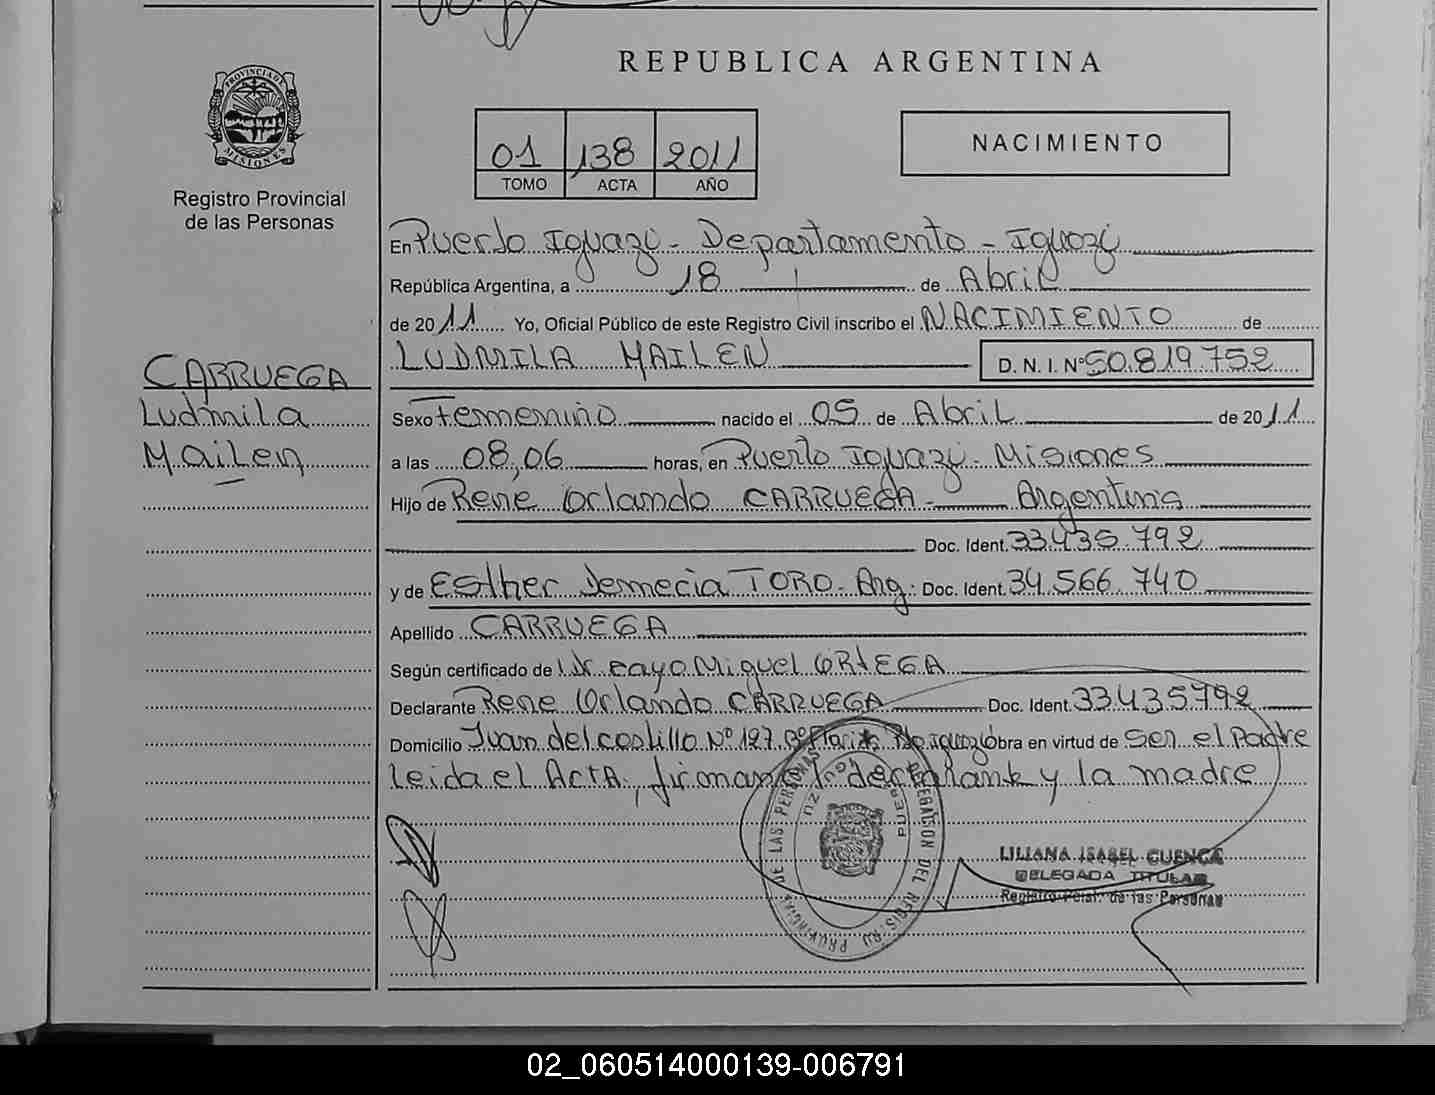 REPUBLICA ARGENTINA
PROVINCIA DE
MISIONES
Registro Provincial
de las Personas
01 138 2011
TOMO ACTA AÑO
NACIMIENTO
En Puerto Iguazú - Departamento - Iguazú
República Argentina, a 18 de Abril
de 2011 Yo, Oficial Público de este Registro Civil inscribo el NACIMIENTO de
LUDMILA MAILEN D. N. I. Nº 50.819.752
CARRUEGA
Ludmila
Mailen
Sexo Femenino nacido el 05 de Abril de 2011
a las 08,06 horas, en Puerto Iguazú - Misiones
Hijo de Rene Orlando CARRUEGA - Argentina
Doc. Ident. 33.435.792
y de Esther TORO - Arg. Doc. Ident. 34.566.740
Apellido CARRUEGA
Según certificado de Dr. Cayo Miguel ORTEGA
Declarante Rene Orlando CARRUEGA Doc. Ident. 33.435.792
Domicilio Juan del Castillo Nº 127 Bº obra en virtud de Ser el Padre
Leida el Acta, firman declarante y la madre
DELEGACION DEL REGISTRO PROVINCIAL DE LAS PERSONAS
PUERTO IGUAZU
LILIANA ISABEL CUENCA
DELEGADA TITULAR
Registro Pcial. de las Personas
02_060514000139-006791